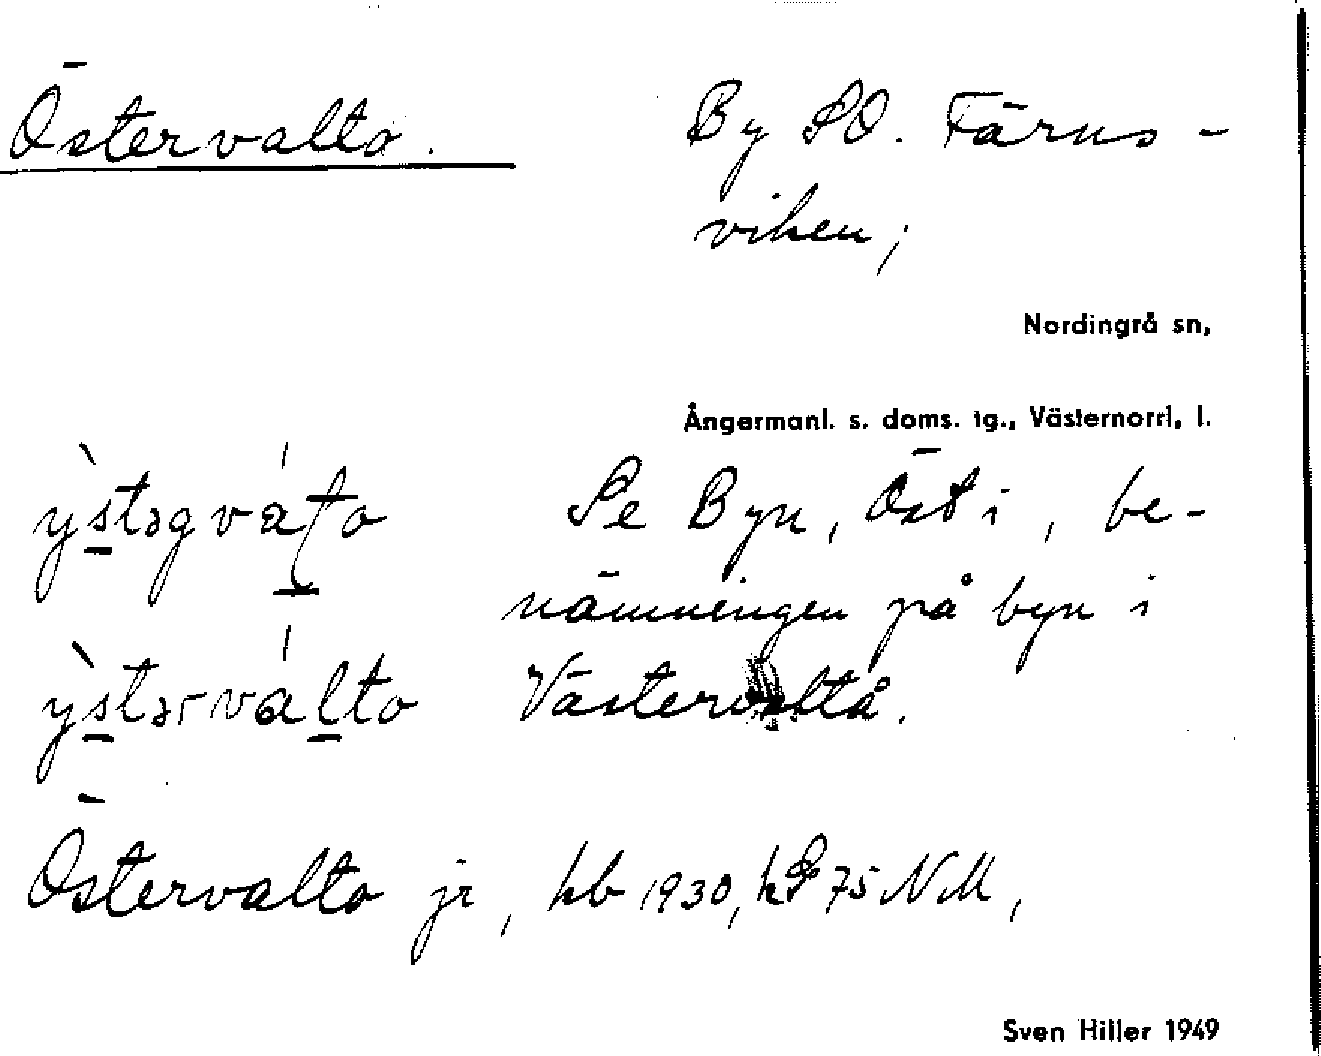 Östervalto.
By SO. Färns-
viken,
Nordingrå sn,
Ångermanl. s. doms. tg., Västernorrl. l.
Se Byn, Öst i, be-
nämningen på byn i
Västervaltå.
Östervalto jr, hb 1930, kS 75 NM,
Sven Hiller 1949